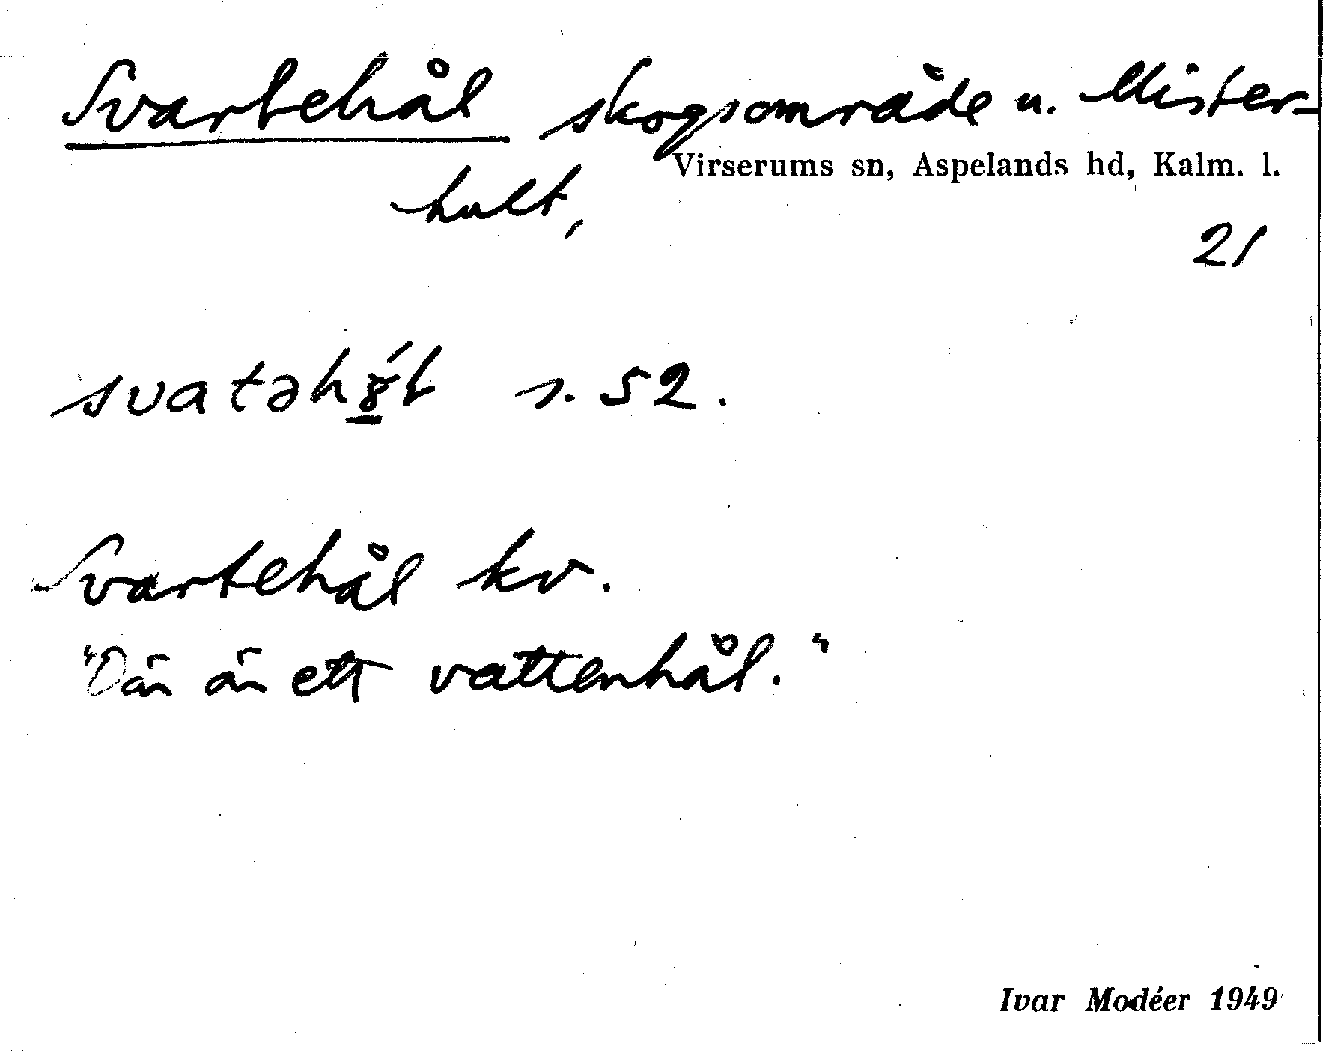 Svartehål skogsområde u. Mister-
Virserums sn, Aspelands hd, Kalm. l.
hult,
21
svatəh8́l s. 52.
Svartehål kv.
"Där är ett vattenhål."
Ivar Modéer 1949